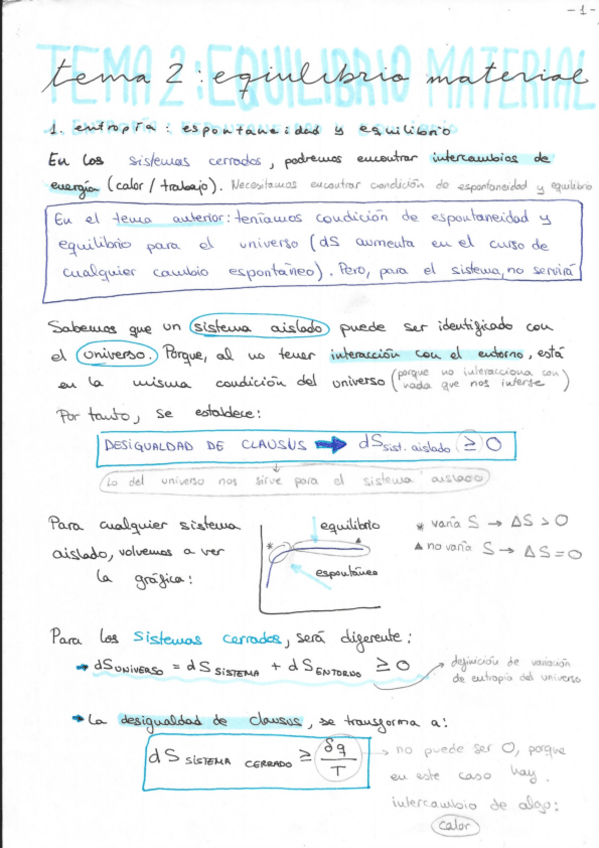 -1-
TEMA 2: EQUILIBRIO MATERIAL
tema 2: eqiulibrio material
1. entropía: espontaneidad y equilibrio
En los sistemas cerrados, podremos encontrar intercambios de
energía (calor / trabajo). Necesitamos encontrar condición de espontaneidad y equilibrio
En el tema anterior: teníamos condición de espontaneidad y
equilibrio para el universo (dS aumenta en el curso de
cualquier cambio espontáneo). Pero, para el sistema, no servirá
Sabemos que un sistema aislado puede ser identificado con
el universo. Porque, al no tener interacción con el entorno, está
en la misma condición del universo (porque no interacciona con
nada que nos interse)
Por tanto, se establece:
DESIGUALDAD DE CLAUSUS → dS sist. aislado ≥ 0
Lo del universo nos sirve para el sistema aislado
Para cualquier sistema
aislado, volvemos a ver
la gráfica:
equilibrio
* ▲
espontáneo
* varía S → ΔS > 0
▲ no varía S → ΔS = 0
Para los sistemas cerrados, será diferente:
→ dS UNIVERSO = dS SISTEMA + dS ENTORNO ≥ 0
definición de variación
de entropía del universo
→ La desigualdad de clausus, se transforma a:
dS SISTEMA CERRADO ≥ δq/T
no puede ser 0, porque
en este caso hay
intercambio de algo:
calor